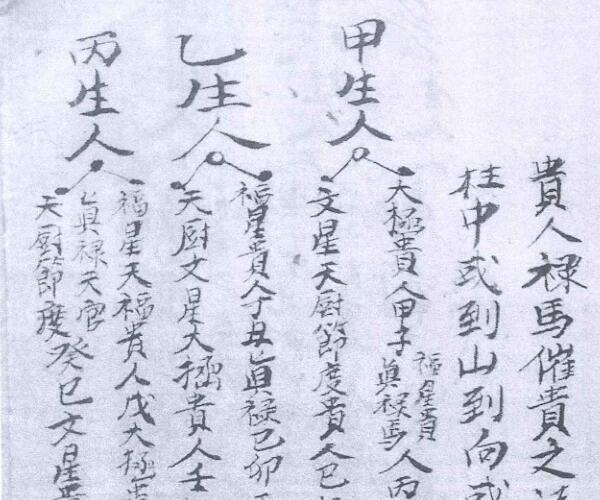 貴人禄馬催貴之
柱中或到山到向或
甲生人
太極貴人甲子
福星貴人丙
眞禄馬
文星天厨節度貴人巳
乙生人
福星貴人丁丑眞禄己卯
天厨文星太極貴人壬
丙生人
福星天福貴人戊太極貴
眞禄天官
天厨節度癸巳文星貴